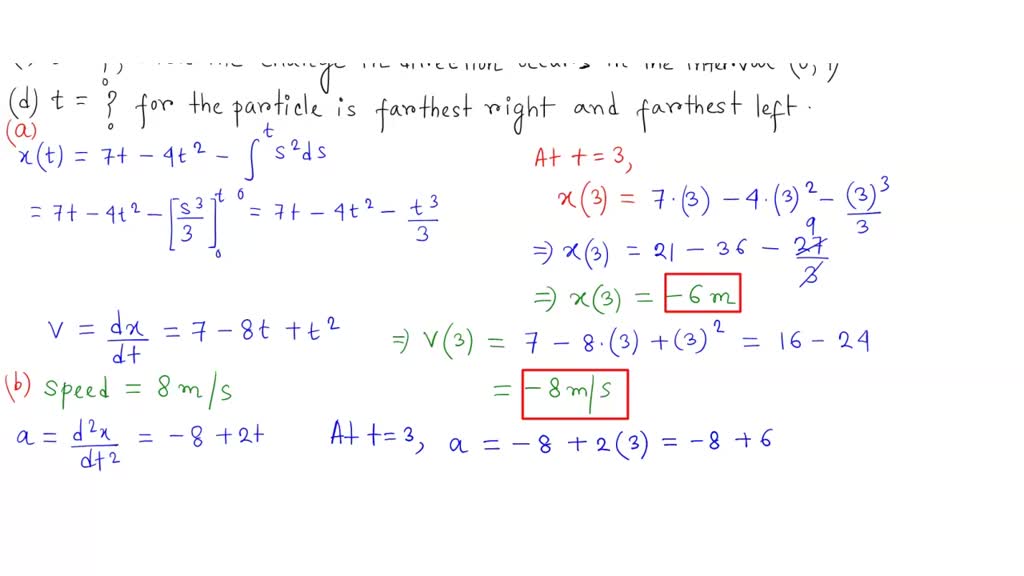 change in direction occurs in the interval (0, 7)
(d) t = ? for the particle is farthest right and farthest left.
(a)
x(t) = 7t - 4t² - ∫₀ᵗ s²ds
= 7t - 4t² - [s³/3]₀ᵗ = 7t - 4t² - t³/3
At t = 3,
x(3) = 7·(3) - 4·(3)² - (3)³/3
⇒ x(3) = 21 - 36 - 27/3 9
⇒ x(3) = -6 m
V = dx/dt = 7 - 8t + t² ⇒ V(3) = 7 - 8·(3) + (3)² = 16 - 24
= -8 m/s
(b) speed = 8 m/s
a = d²x/dt² = -8 + 2t At t = 3, a = -8 + 2(3) = -8 + 6